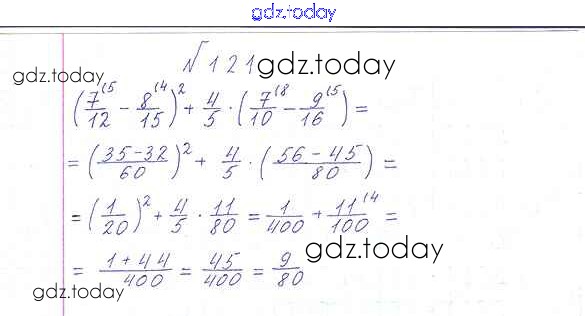 gdz.today
№ 121 gdz.today
gdz.today
(7/12 ⁽⁵ − 8/15 ⁽⁴)² + 4/5 · (7/10 ⁽⁸ − 9/16 ⁽⁵) =
= ((35−32)/60)² + 4/5 · ((56−45)/80) =
= (1/20)² + 4/5 · 11/80 = 1/400 + 11/100 ⁽⁴ =
gdz.today
= (1+44)/400 = 45/400 = 9/80
gdz.today